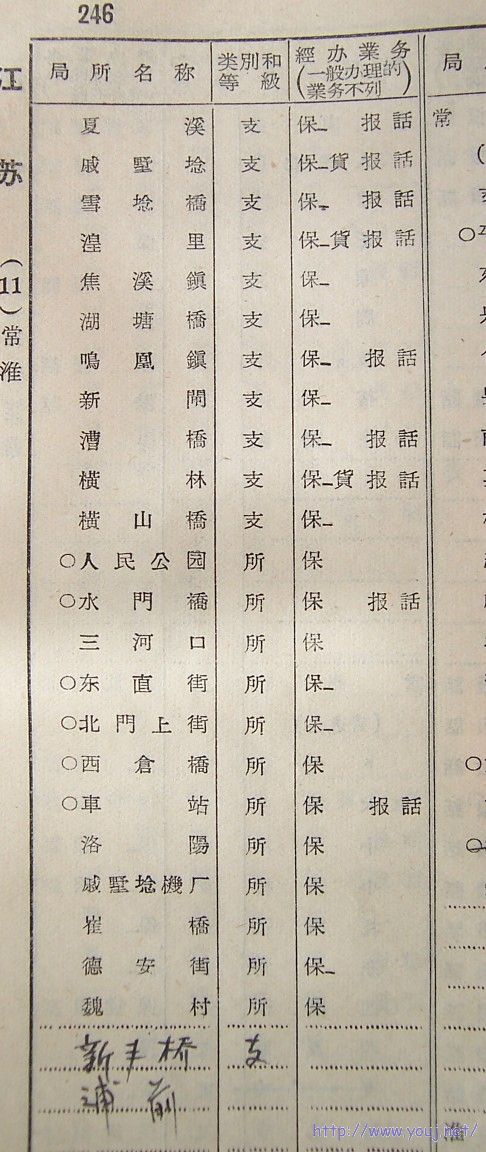 246
江苏
(11)
常淮
局所名称 类别和等級 經办業务(一般办理的業务不列) 局
夏溪 支 保_ 报話 常
戚墅埝 支 保_貨报話
雪埝橋 支 保_ 报話
湟里 支 保_貨报話
焦溪鎮 支 保_
湖塘橋 支 保_
鳴凰鎮 支 保_ 报話
新閘 支 保_
漕橋 支 保_ 报話
橫林 支 保_貨报話
橫山橋 支 保_
○人民公园 所 保
○水門橋 所 保 报話
三河口 所 保
○东直街 所 保_
○北門上街 所 保_
○西倉橋 所 保
○車站 所 保 报話
洛陽 所 保
戚墅埝機厂 所 保
崔橋 所 保
德安街 所 保_
魏村 所 保
新丰桥 支
浦前
淮
http://www.youj.net/